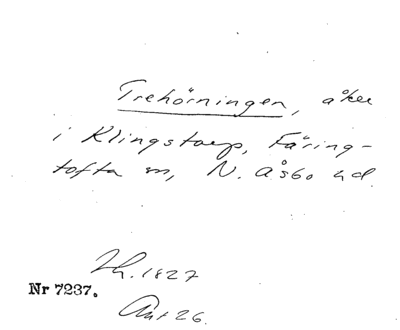 Trehörningen, åker
i Klingstorp, Färing-
tofta sn, N. Åsbo hd.
Lh. 1827
Nr 7237.
Akt 26.